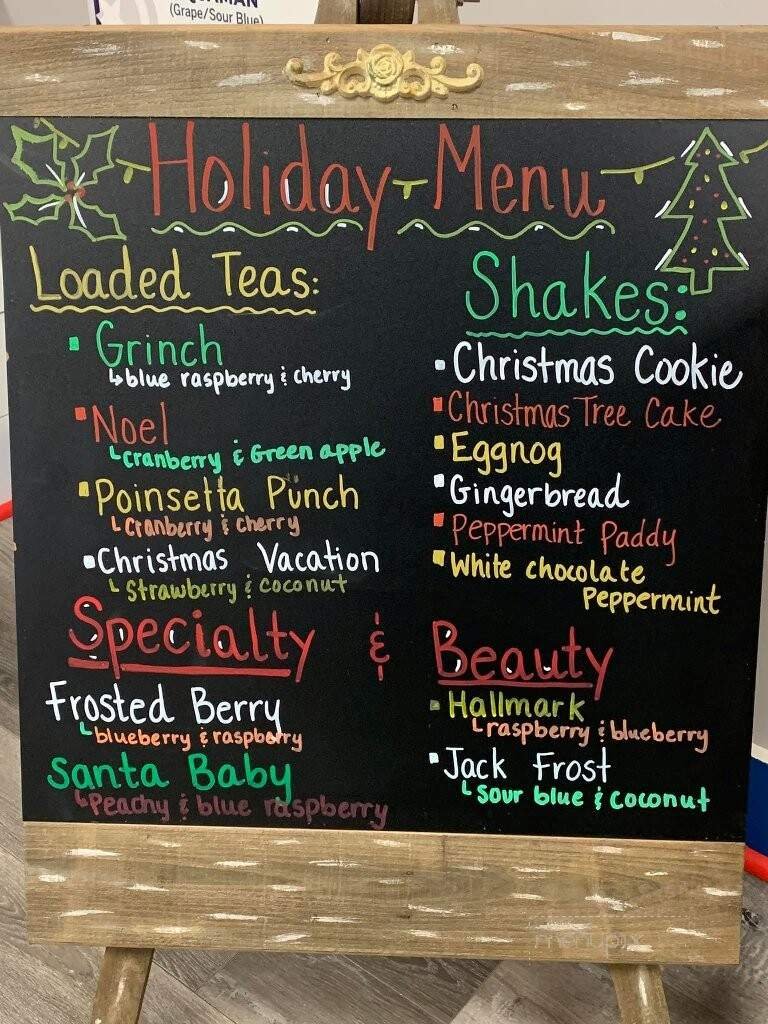 (Grape/Sour Blue)
Holiday Menu
Loaded Teas:
Grinch
blue raspberry & cherry
Noel
cranberry & Green apple
Poinsetta Punch
cranberry & cherry
Christmas Vacation
Strawberry & coconut
Shakes:
Christmas Cookie
Christmas Tree Cake
Eggnog
Gingerbread
Peppermint Paddy
White chocolate
Peppermint
Specialty & Beauty
Frosted Berry
blueberry & raspberry
Santa Baby
Peachy & blue raspberry
Hallmark
raspberry & blueberry
Jack Frost
Sour blue & coconut
menupix